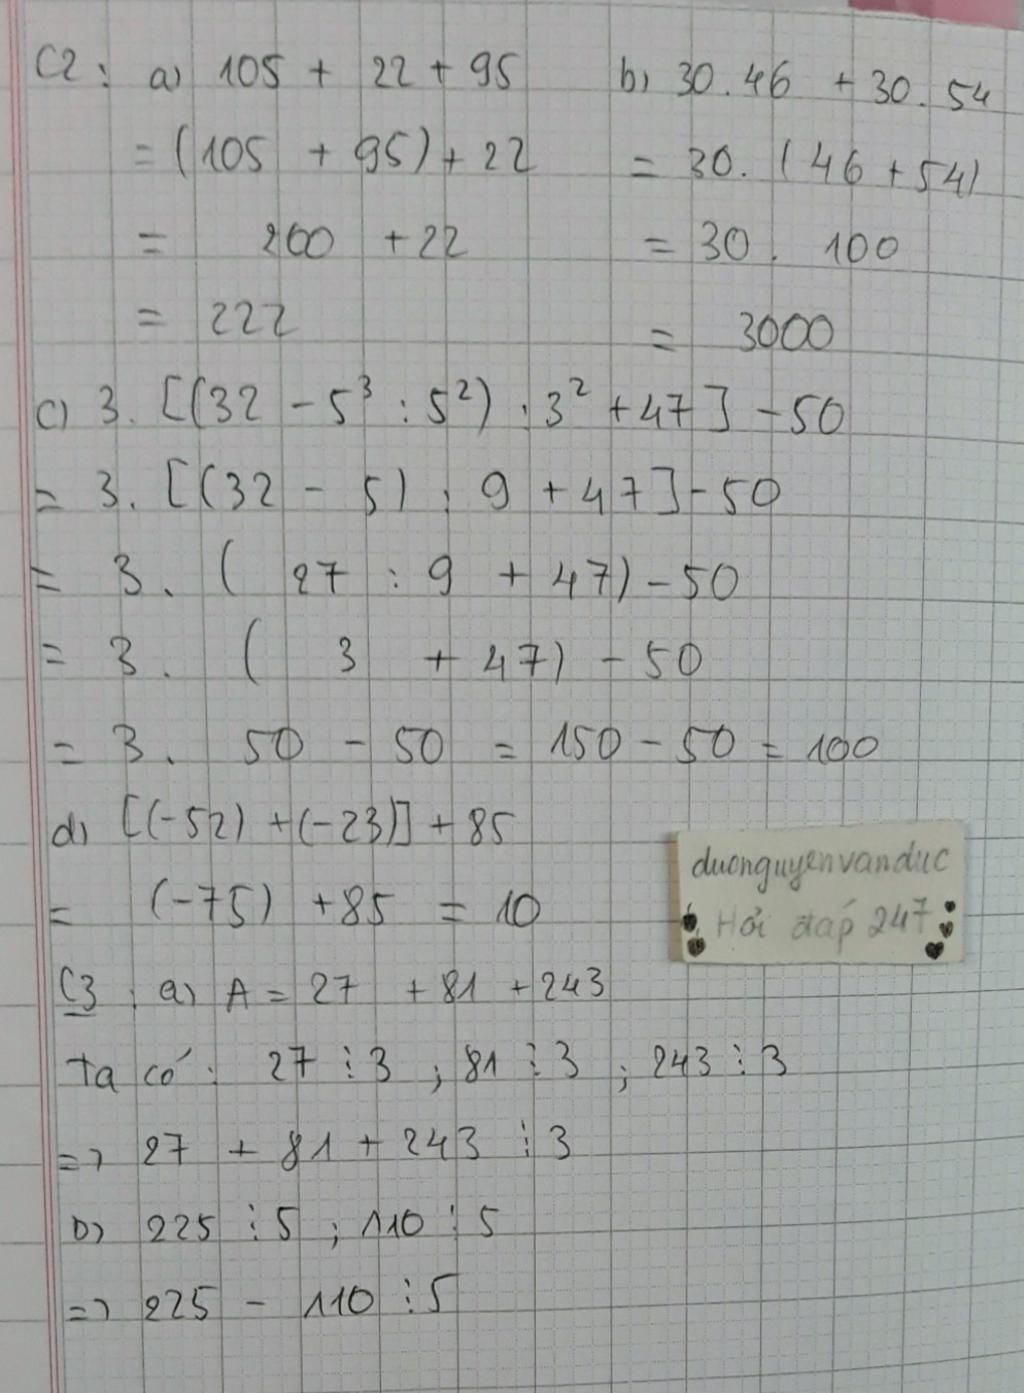 C2: a) 105 + 22 + 95
= (105 + 95) + 22
= 200 + 22
= 222
b) 30.46 + 30.54
= 30. (46 + 54)
= 30. 100
= 3000
c) 3. [(32 - 5³ : 5²) : 3² + 47] - 50
= 3. [(32 - 5) : 9 + 47] - 50
= 3. ( 27 : 9 + 47) - 50
= 3. ( 3 + 47) - 50
= 3. 50 - 50 = 150 - 50 = 100
d) [(-52) + (-23)] + 85
= (-75) + 85 = 10
duonguyenvanduc
Hỏi đáp 247
C3: a) A = 27 + 81 + 243
Ta có: 27 ⋮ 3 ; 81 ⋮ 3 ; 243 ⋮ 3
=> 27 + 81 + 243 ⋮ 3
b) 225 ⋮ 5 ; 110 ⋮ 5
=> 225 - 110 ⋮ 5